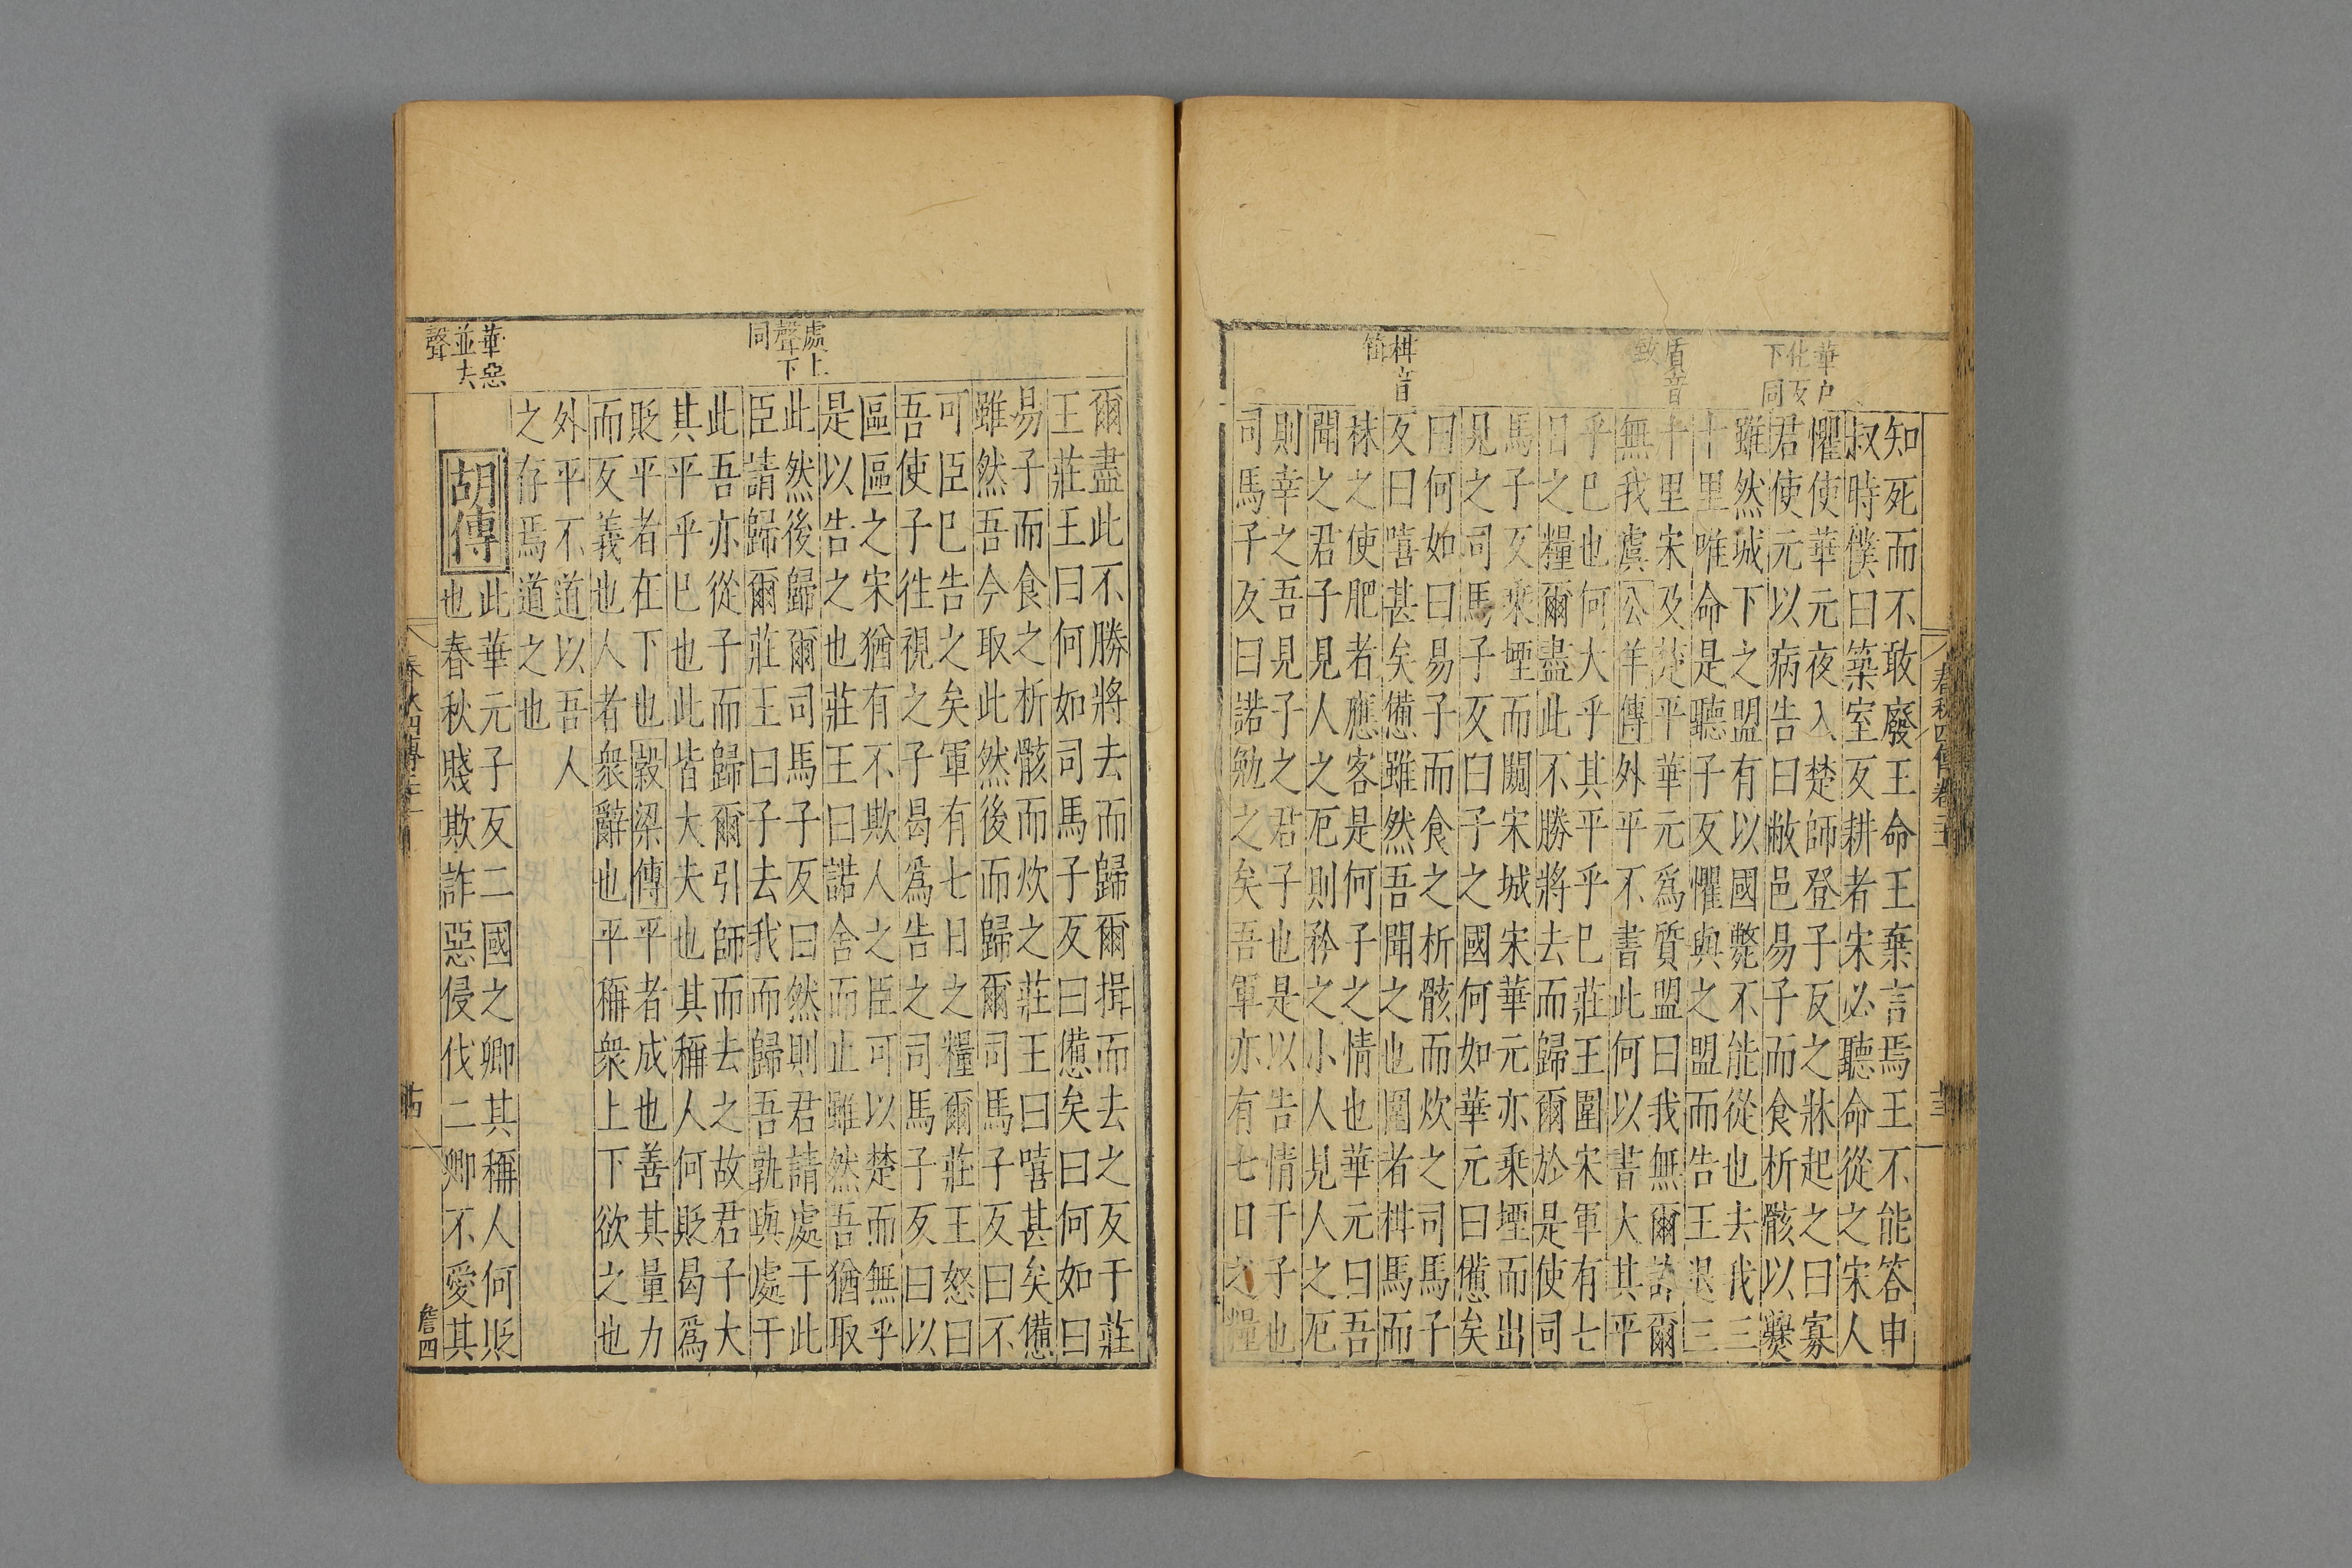 華户
化反
下同
盾音
致
柑音
箝
知死而不敢廢王命王棄言焉王不能答申
叔時僕曰築室反耕者宋必聽命從之宋人
懼使華元夜入楚師登子反之牀起之曰寡
君使元以病告曰敝邑易子而食析骸以爨
雖然城下之盟有以國斃不能從也去我三
十里唯命是聽子反懼與之盟而告王退三
十里宋及楚平華元爲質盟曰我無爾詐爾
無我虞公羊傳外平不書此何以書大其平
乎已也何大乎其平乎已莊王圍宋軍有七
日之糧爾盡此不勝將去而歸爾於是使司
馬子反乘堙而闚宋城宋華元亦乘堙而出
見之司馬子反曰子之國何如華元曰憊矣
曰何如曰易子而食之析骸而炊之司馬子
反曰嘻甚矣憊雖然吾聞之也圍者柑馬而
秣之使肥者應客是何子之情也華元曰吾
聞之君子見人之厄則矜之小人見人之厄
則幸之吾見子之君子也是以告情于子也
司馬子反曰諾勉之矣吾軍亦有七日之糧
春秋四傳卷二十
處上
聲下
同
華惡
並去
聲
爾盡此不勝將去而歸爾揖而去之反于莊
王莊王曰何如司馬子反曰憊矣曰何如曰
易子而食之析骸而炊之莊王曰嘻甚矣憊
雖然吾今取此然後而歸爾司馬子反曰不
可臣已告之矣軍有七日之糧爾莊王怒曰
吾使子往視之子曷爲告之司馬子反曰以
區區之宋猶有不欺人之臣可以楚而無乎
是以告之也莊王曰諾舍而止雖然吾猶取
此然後歸爾司馬子反曰然則君請處于此
臣請歸爾莊王曰子去我而歸吾孰與處于
此吾亦從子而歸爾引師而去之故君子大
其平乎已也此皆大夫也其稱人何貶曷爲
貶平者在下也穀梁傳平者成也善其量力
而反義也人者衆辭也平稱衆上下欲之也
外平不道以吾人
之存焉道之也
胡傳
此華元子反二國之卿其稱人何貶
也春秋賤欺詐惡侵伐二卿不愛其
詹四